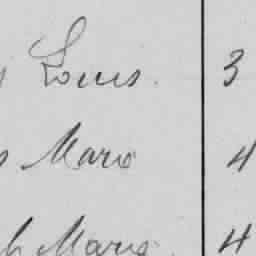 Louis 3
Marie 4
Marie 4